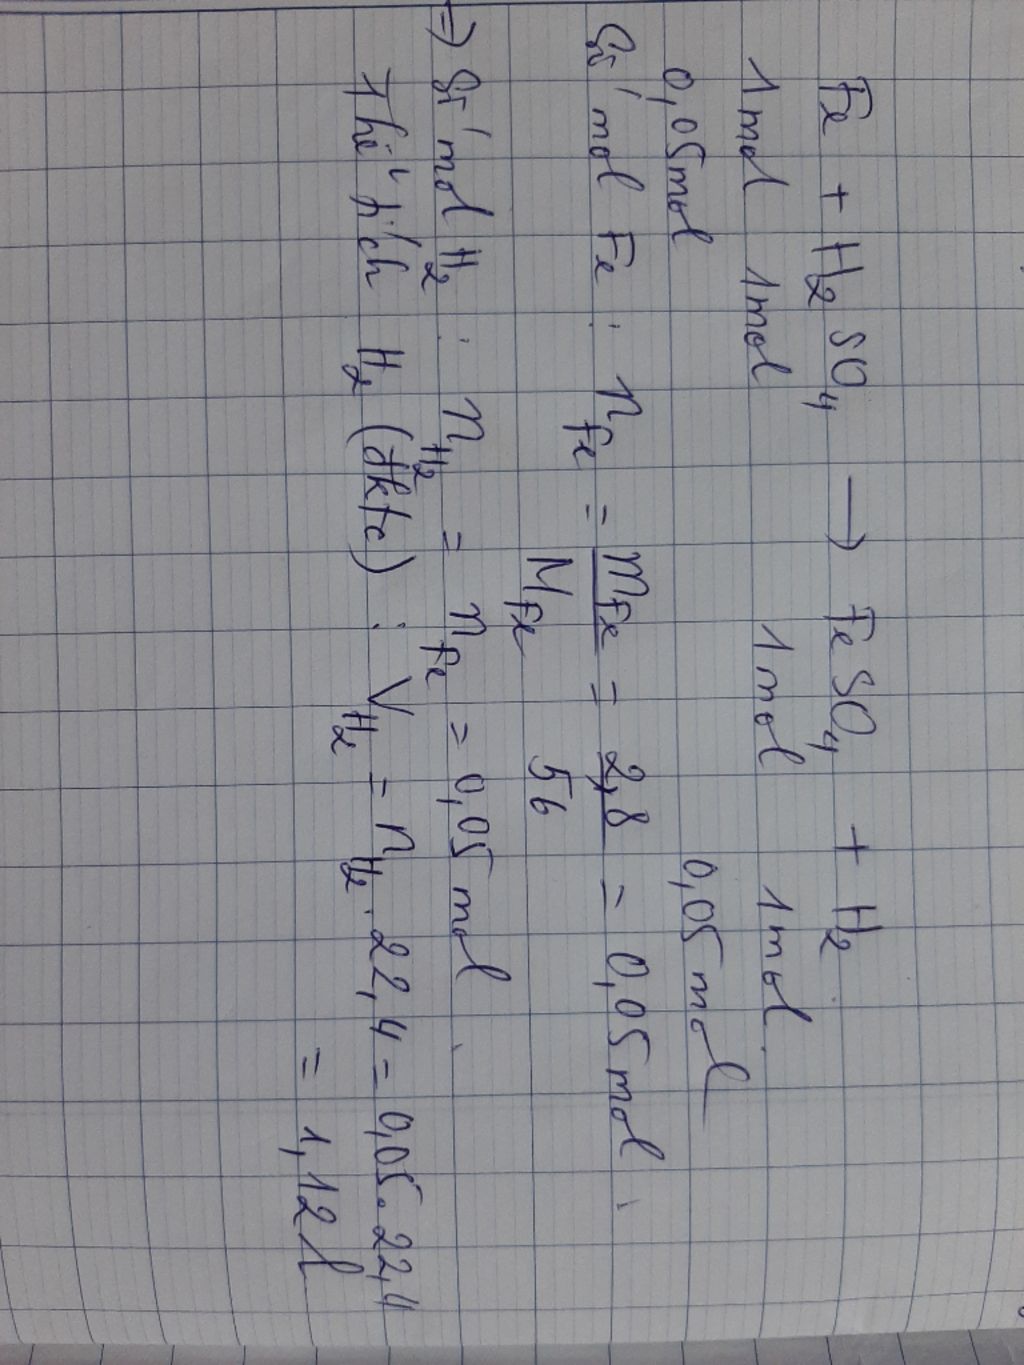 Fe + H₂SO₄ → FeSO₄ + H₂
1mol 1mol 1mol 1mol
0,05mol 0,05mol
Số mol Fe : n_Fe = m_Fe / M_Fe = 2,8 / 56 = 0,05mol
⇒ Số mol H₂ : n_H₂ = n_Fe = 0,05 mol
Thể tích H₂ (đktc) : V_H₂ = n_H₂ . 22,4 = 0,05 . 22,4
= 1,12 l